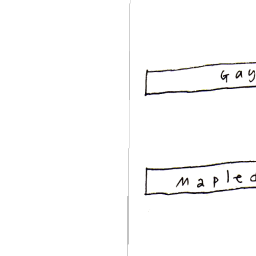 Gay
Maple